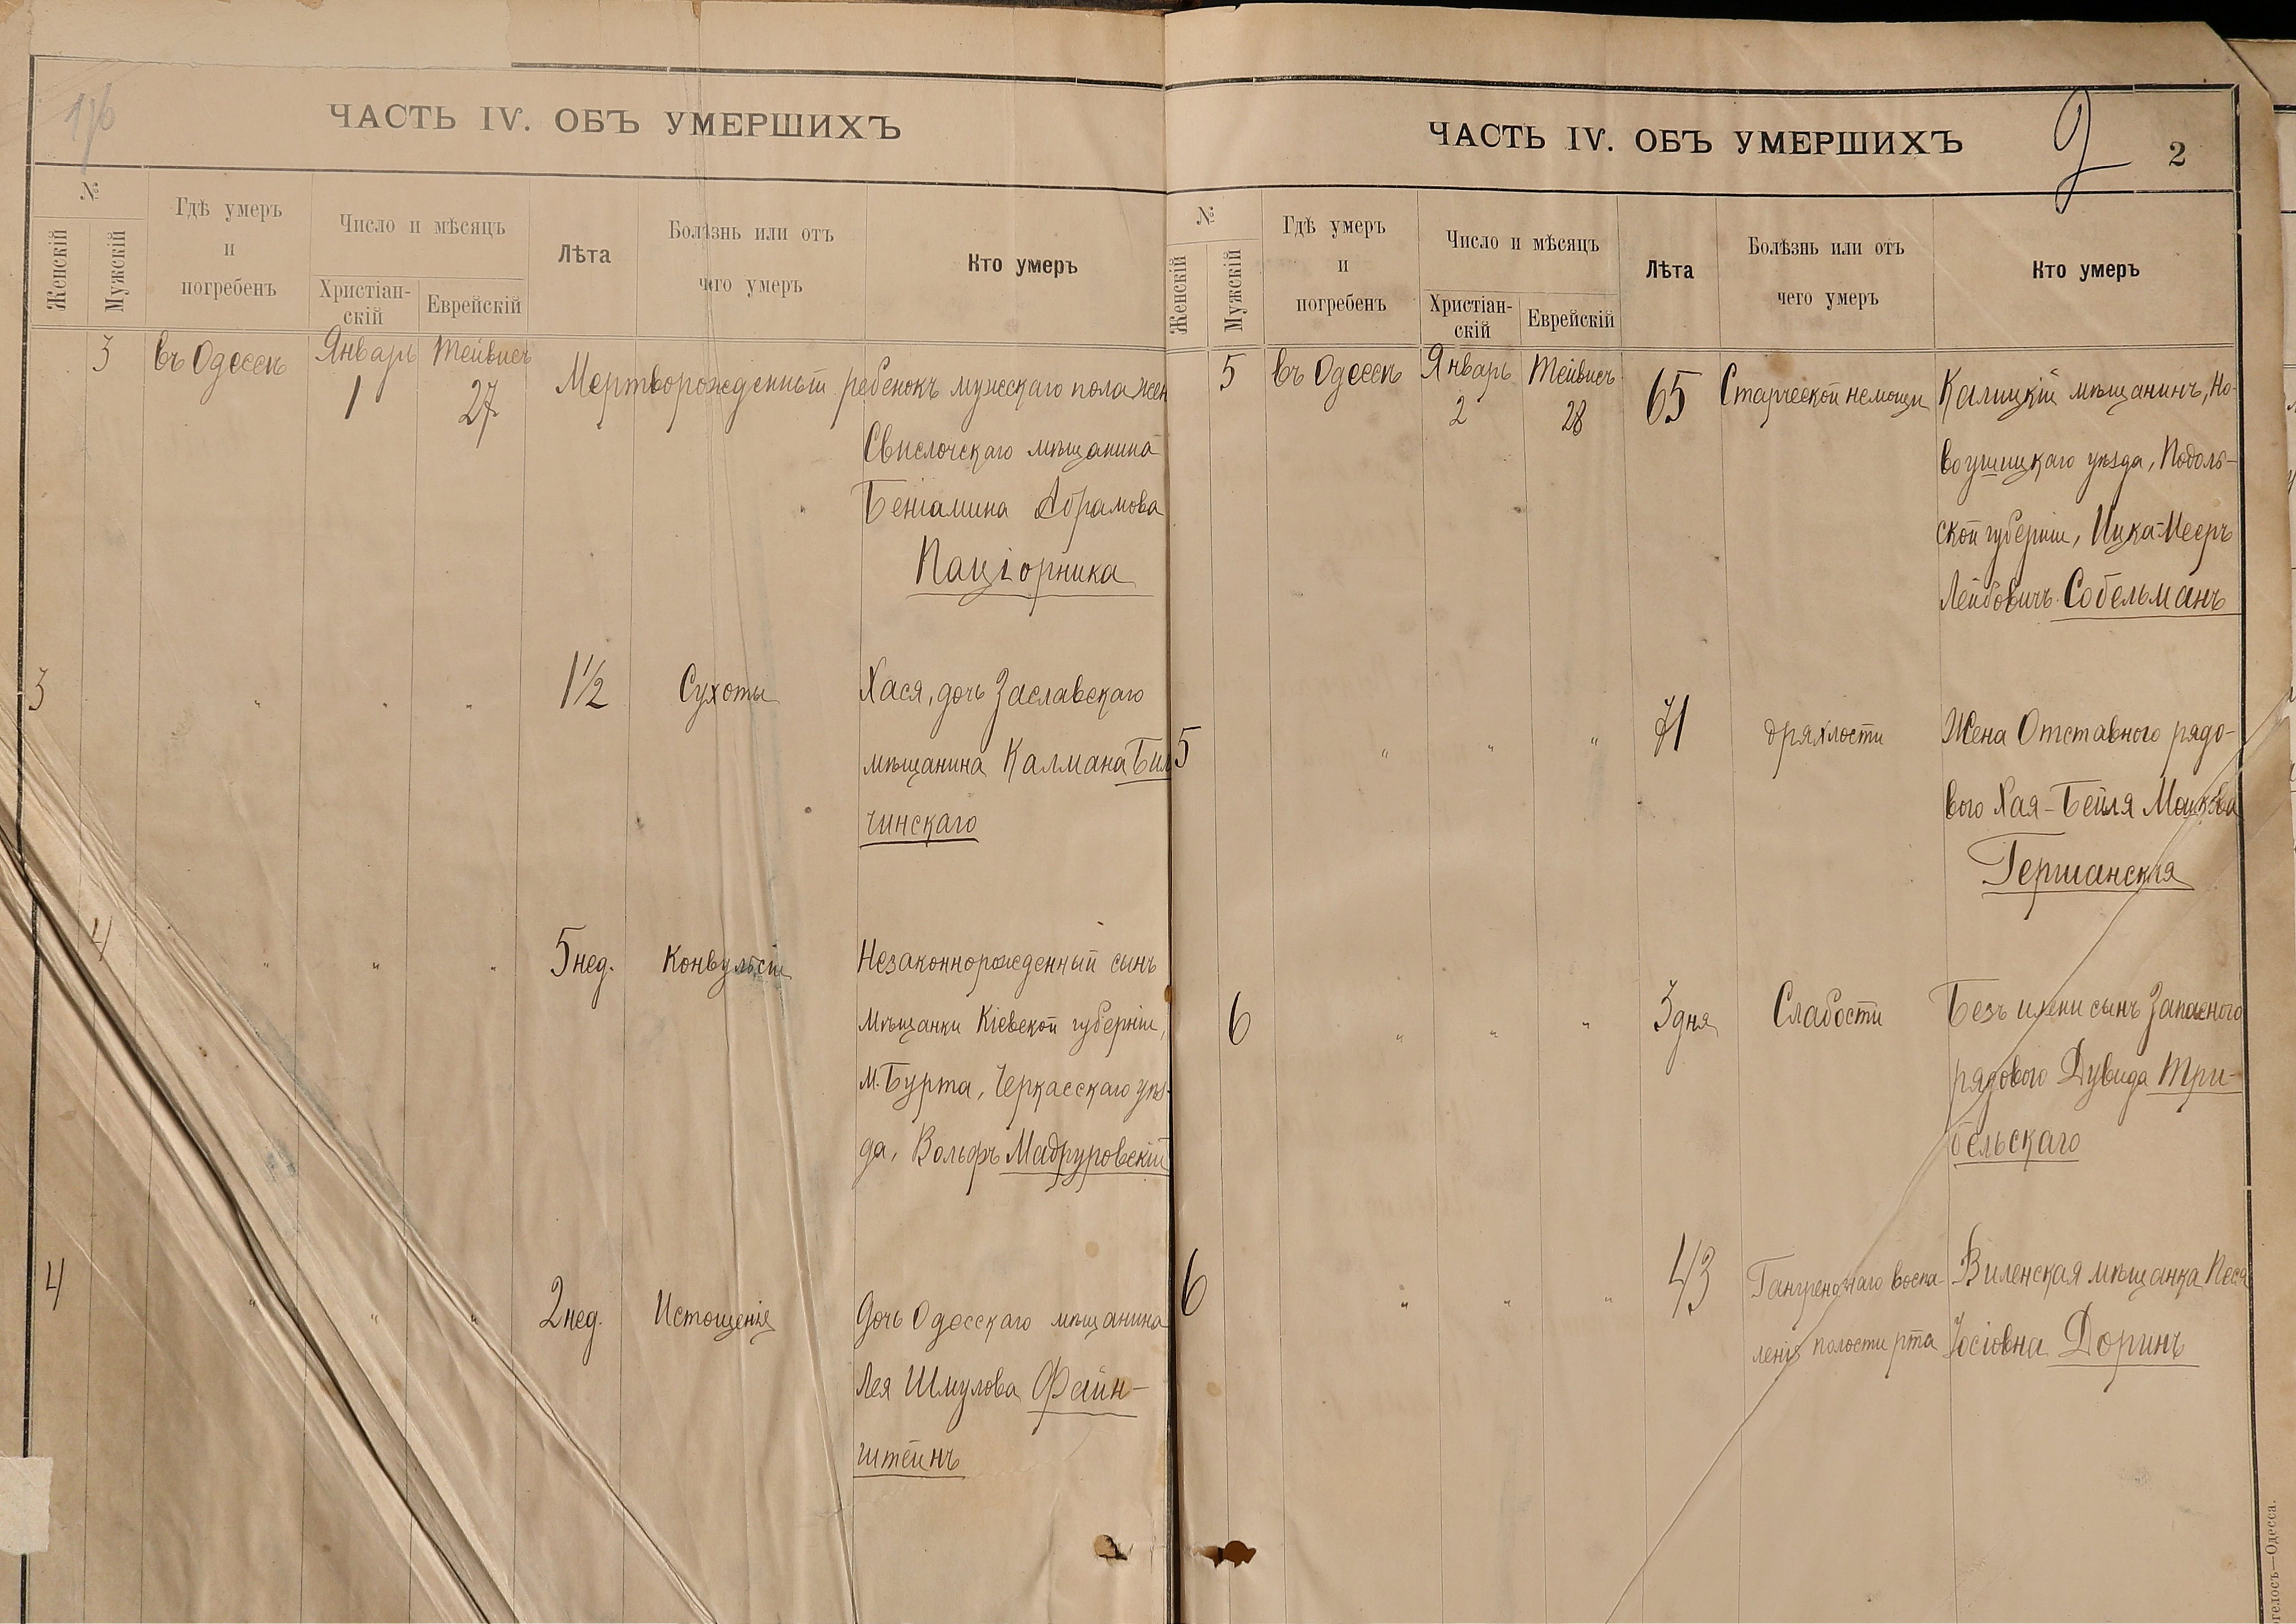 176
ЧАСТЬ IV. ОБЪ УМЕРШИХЪ
№
Женскій
Мужскій
Гдѣ умеръ
и
погребенъ
Число и мѣсяцъ
Христіан-
скій
Еврейскій
Лѣта
Болѣзнь или отъ
чего умеръ
Кто умеръ
3 въ Одессѣ Январь Тейвисъ
1 27 Мертворожденный ребенокъ мужескаго пола жен
Свислочскаго мѣщанина
Беніамина Абрамова
Пацгорника
3 " " " 1½ Сухоты Хася, дочь Заславскаго
мѣщанина Калмана Бил
чинскаго
4 " " " 5 нед. Конвульсіи Незаконнорожденный сынъ
мѣщанки Кіевской губерніи,
м. Бурта, Черкасскаго уѣз-
да, Вольфъ Мадруровскій
4 " " " 2 нед. Истощенія Дочь Одесскаго мѣщанина
Лея Шмулова Файн-
штейнъ
ЧАСТЬ IV. ОБЪ УМЕРШИХЪ
2
2
№
Женскій
Мужскій
Гдѣ умеръ
и
погребенъ
Число и мѣсяцъ
Христіан-
скій
Еврейскій
Лѣта
Болѣзнь или отъ
чего умеръ
Кто умеръ
5 въ Одессѣ Январь Тейвисъ
2 28 65 Старческой немощи Калицкій мѣщанинъ, Но-
воушицкаго уѣзда, Подоль-
ской губерніи, Ицка-Мееръ
Лейбовичъ Собельманъ
5 " " " 71 дряхлости Жена Отставного рядо-
вого Хая-Бейля Мошкова
Гершанская
6 " " " 3 дня Слабости Безъ имени сынъ Запасного
рядового Дувида Три-
бельскаго
6 " " " 43 Гангренознаго воспа- Виленская мѣщанка Песя
ленія полости рта Іосіовна Доринъ
гелосъ—Одесса.